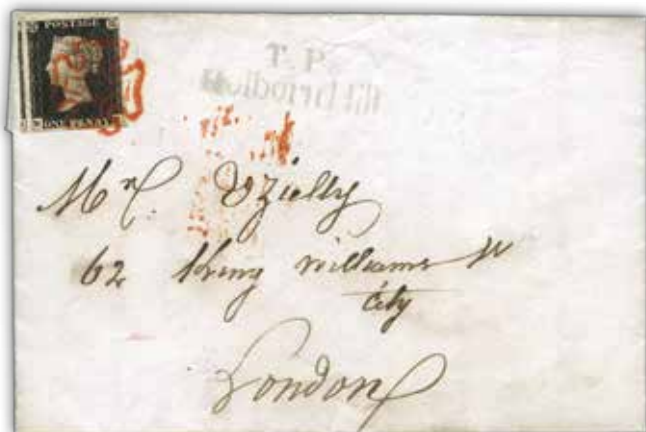 POSTAGE
ONE PENNY
T. P.
Holborn Hill
Mr Uzielly
62 King William St
City
London